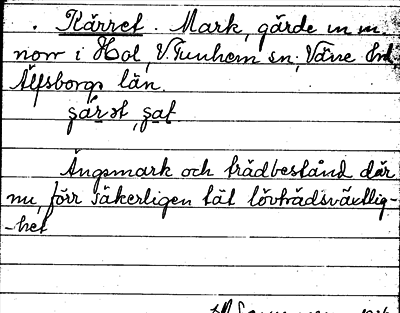 . Kärret. Mark, gärde m m.
norr i Hol, V. Tunhem sn, Väne hd
Älfsborgs län.
Ängsmark och trädbestånd där
nu, förr säkerligen tät lövträdsväxtlig-
-het